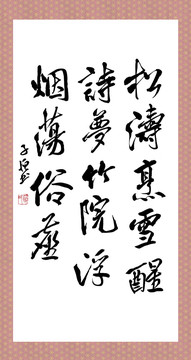 松濤烹雪醒
詩夢竹院浮
烟蕩俗塵